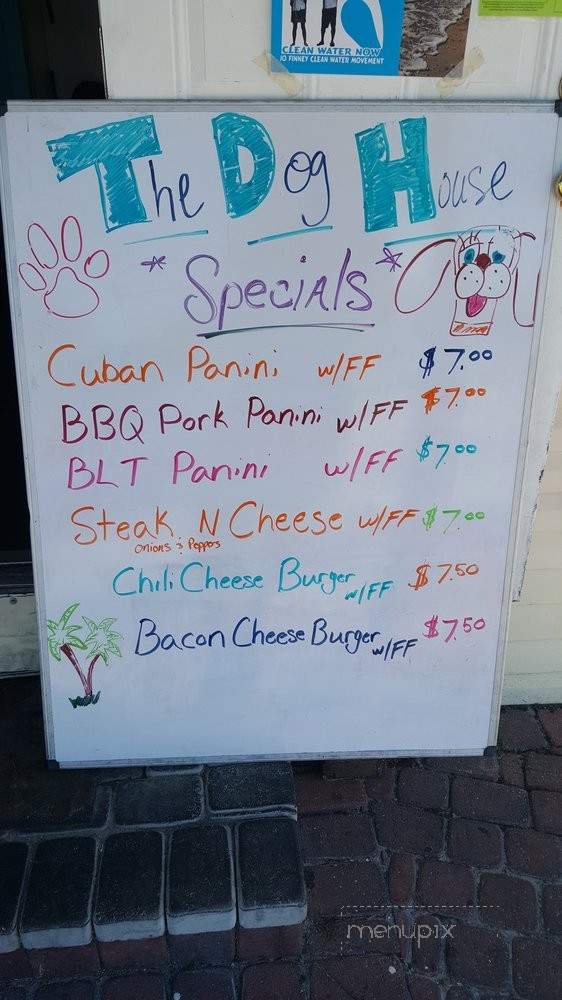 CLEAN WATER NOW
JO FINNEY CLEAN WATER MOVEMENT
The Dog House
*Specials*
Cuban Panini w/FF $7.00
BBQ Pork Panini w/FF $7.00
BLT Panini w/FF $7.00
Steak N Cheese w/FF $7.00
Onions & Peppers
Chili Cheese Burger w/FF $7.50
Bacon Cheese Burger w/FF $7.50
menupix